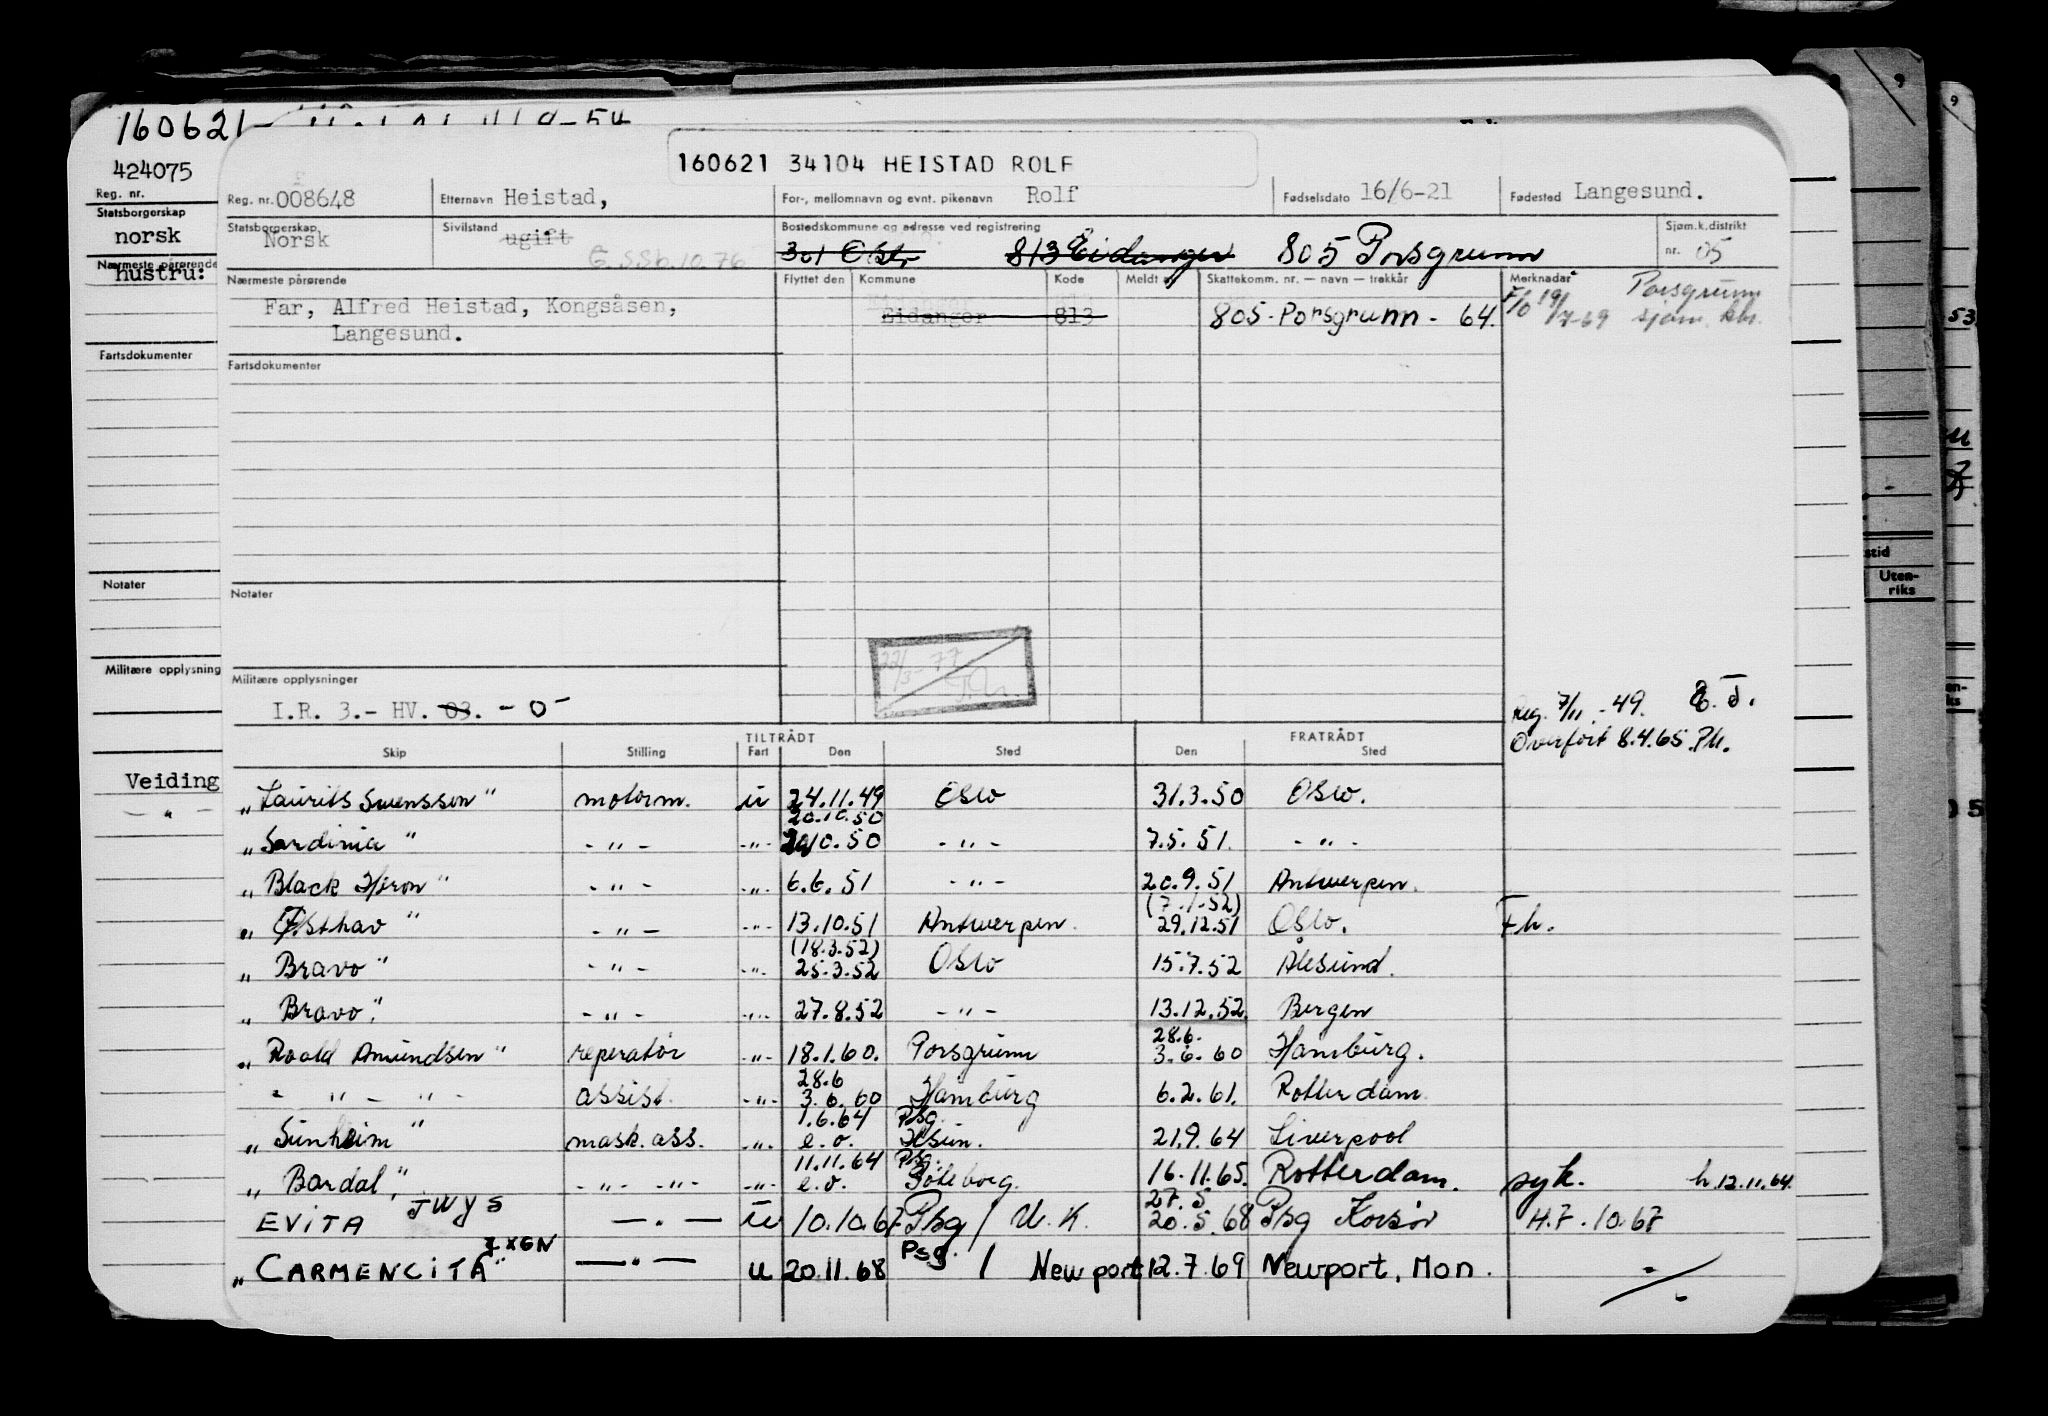 160621
424075
Reg. nr.
Statsborgerskap
norsk
Nærmeste pårørende
hustru:
Fartsdokumenter
Notater
Militære opplysning
Veiding
- " -
160621 34104 HEISTAD ROLF
Reg. nr. 008648 Etternavn Heistad, For-, mellomnavn og evnt. pikenavn Rolf Fødselsdato 16/6-21 Fødested Langesund.
Statsborgerskap Norsk Sivilstand ugift Bostedskommune og adresse ved registrering 301 Oslo 813 Eidanger 805 Porsgrunn Sjøm.k.distrikt nr. 05
Nærmeste pårørende Flyttet den Kommune Kode Meldt Skattekomm. nr. — navn — trekkår Merknader
Far, Alfred Heistad, Kongsåsen,
Langesund.
Eidanger 813 805-Porsgrunn - 64. F/o 19/7-69 Porsgrunn sjøm. ktr.
Fartsdokumenter
Notater
22/3-77
Militære opplysninger
I.R. 3.- HV. 03. - 0 -
Reg. 7/11.-49. E.T.
Overført 8.4.65. Ph.
TILTRÅDT FRATRÅDT
Skip Stilling Fart Den Sted Den Sted
"Laurits Swensson" motorm. u 24.11.49 Oslo 31.3.50 Oslo.
20.10.50
"Sardinia" - " - - " - 10.50 - " - 7.5.51. - " -
"Black Heron" - " - - " - 6.6.51 - " - 20.9.51 Antwerpen.
(7.1.52)
"Østhav" - " - - " - 13.10.51 Antwerpen. 29.12.51 Oslo. Fh.
(18.3.52)
"Bravo" - " - - " - 25.3.52 Oslo 15.7.52 Ålesund.
"Bravo." - " - - " - 27.8.52 - " - 13.12.52. Bergen
28.6.
"Roald Amundsen" reperatør - " - 18.1.60. Porsgrunn 3.6.60 Hamburg.
28.6
- " - " - assist. - " - 3.6.60 Hamburg 6.2.61. Rotterdam
1.6.64 Psg.
"Sunheim" mask.ass. - " - e.o. 21.9.64 Liverpool
11.11.64 Psg.
"Bardal," - " - - " - - " - e.o. Göteborg. 16.11.65. Rotterdam. syk. h.12.11.64.
JWYS 27.5
EVITA — " — u 10.10.67 Psg / U.K. 20.5.68 Psg Korsør H.7.10.67
LXGN Psg.
"CARMENCITA" — " — u 20.11.68 / Newport 12.7.69 Newport, Mon.
9
53
stid
Uten-
riks
05